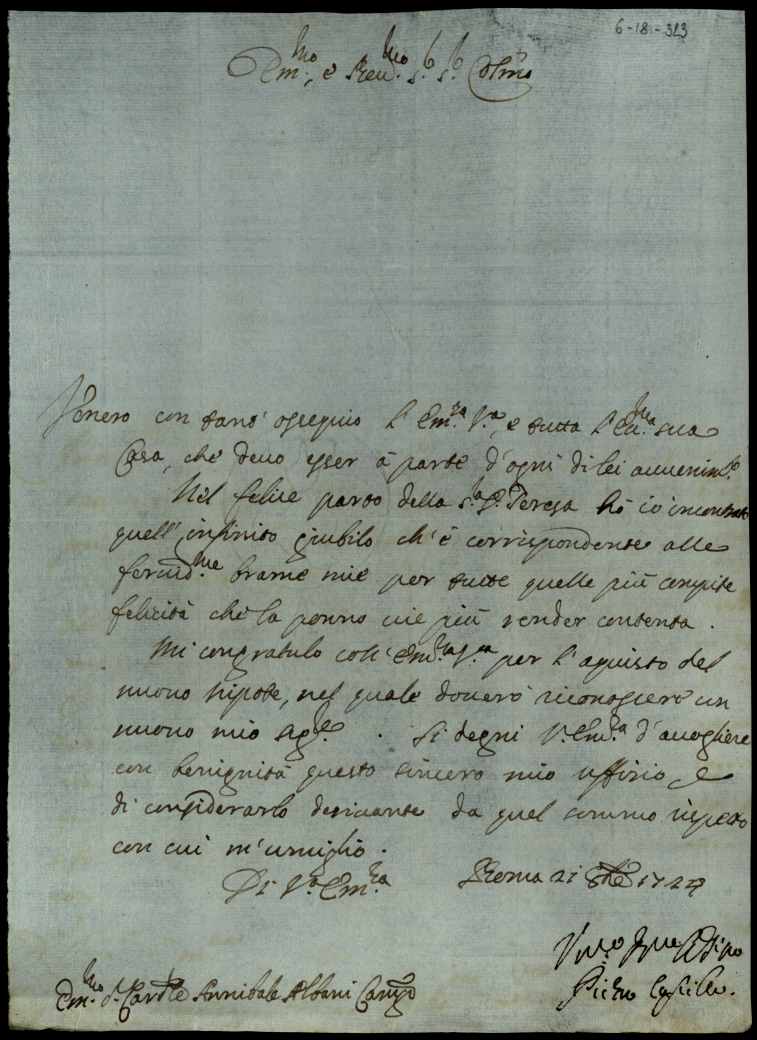 6-18-323
Em.mo, e Reu.mo S.r S.r Colmo
Venero con tant' ossequio l'Em.za V.a, e tutta l'Ecc.ma sua
Casa, che deuo esser à parte d'ogni di lei auuenim.to
Nel felice parto della S.ra D. Teresa hò io incontrato
quell'infinito giubilo ch'è corrispondente alle
feruid.me brame mie per tutte quelle più compite
felicità che la ponno uie più render contenta.
Mi congratulo coll'Em.za V.a per l'aquisto del
nuouo Nipote, nel quale douerò riconoscere un
nuouo mio . Si degni V. Em.za d'accogliere
con benignità questo sincero mio uffizio e
di considerarlo deriuante da quel sommo rispetto
con cui m'umiglio.
Di V.a Em.za Roma 21 1724
Em.mo S.r Card.le Annibale Albani Camgo
Pietro